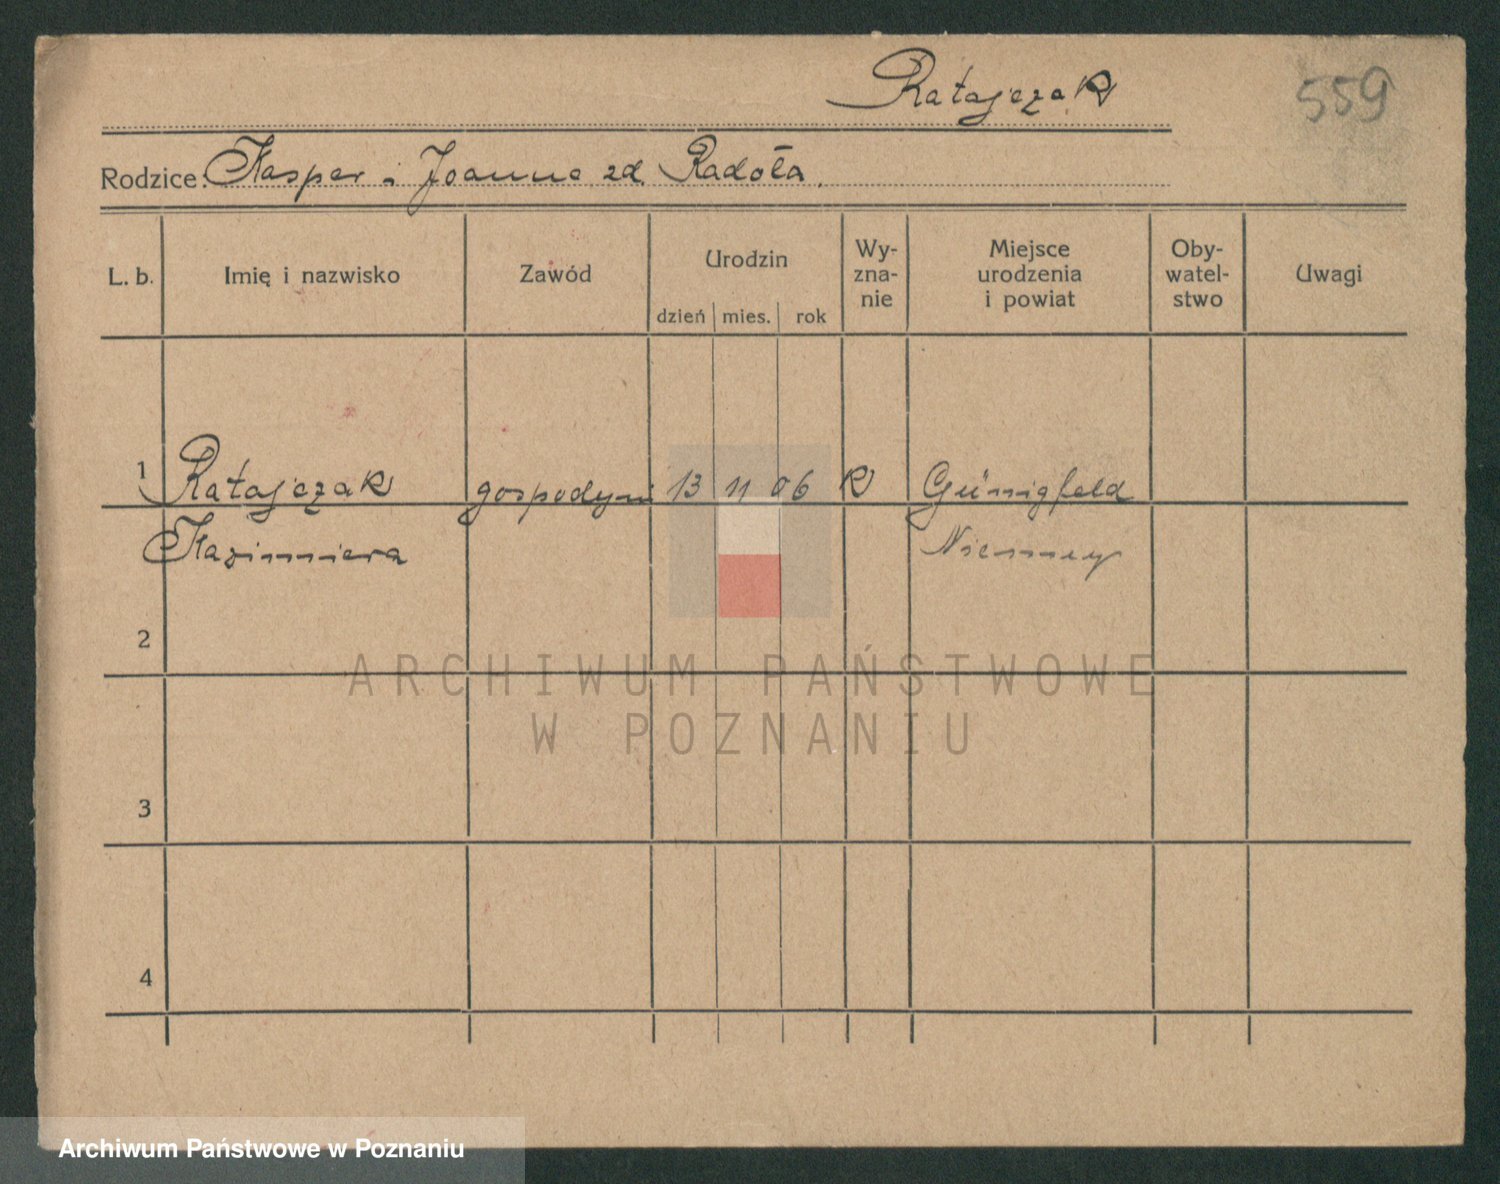 Ratajczak
559
Rodzice: Kasper i Joanna zd. Radoła.
L. b. Imię i nazwisko Zawód Urodzin dzień mies. rok Wy-zna-nie Miejsce urodzenia i powiat Oby-watel-stwo Uwagi
1 Ratajczak gospodyni 13 11 06 R Günnigfeld
Kazimiera Niemcy
2
ARCHIWUM PAŃSTWOWE
W POZNANIU
3
4
Archiwum Państwowe w Poznaniu